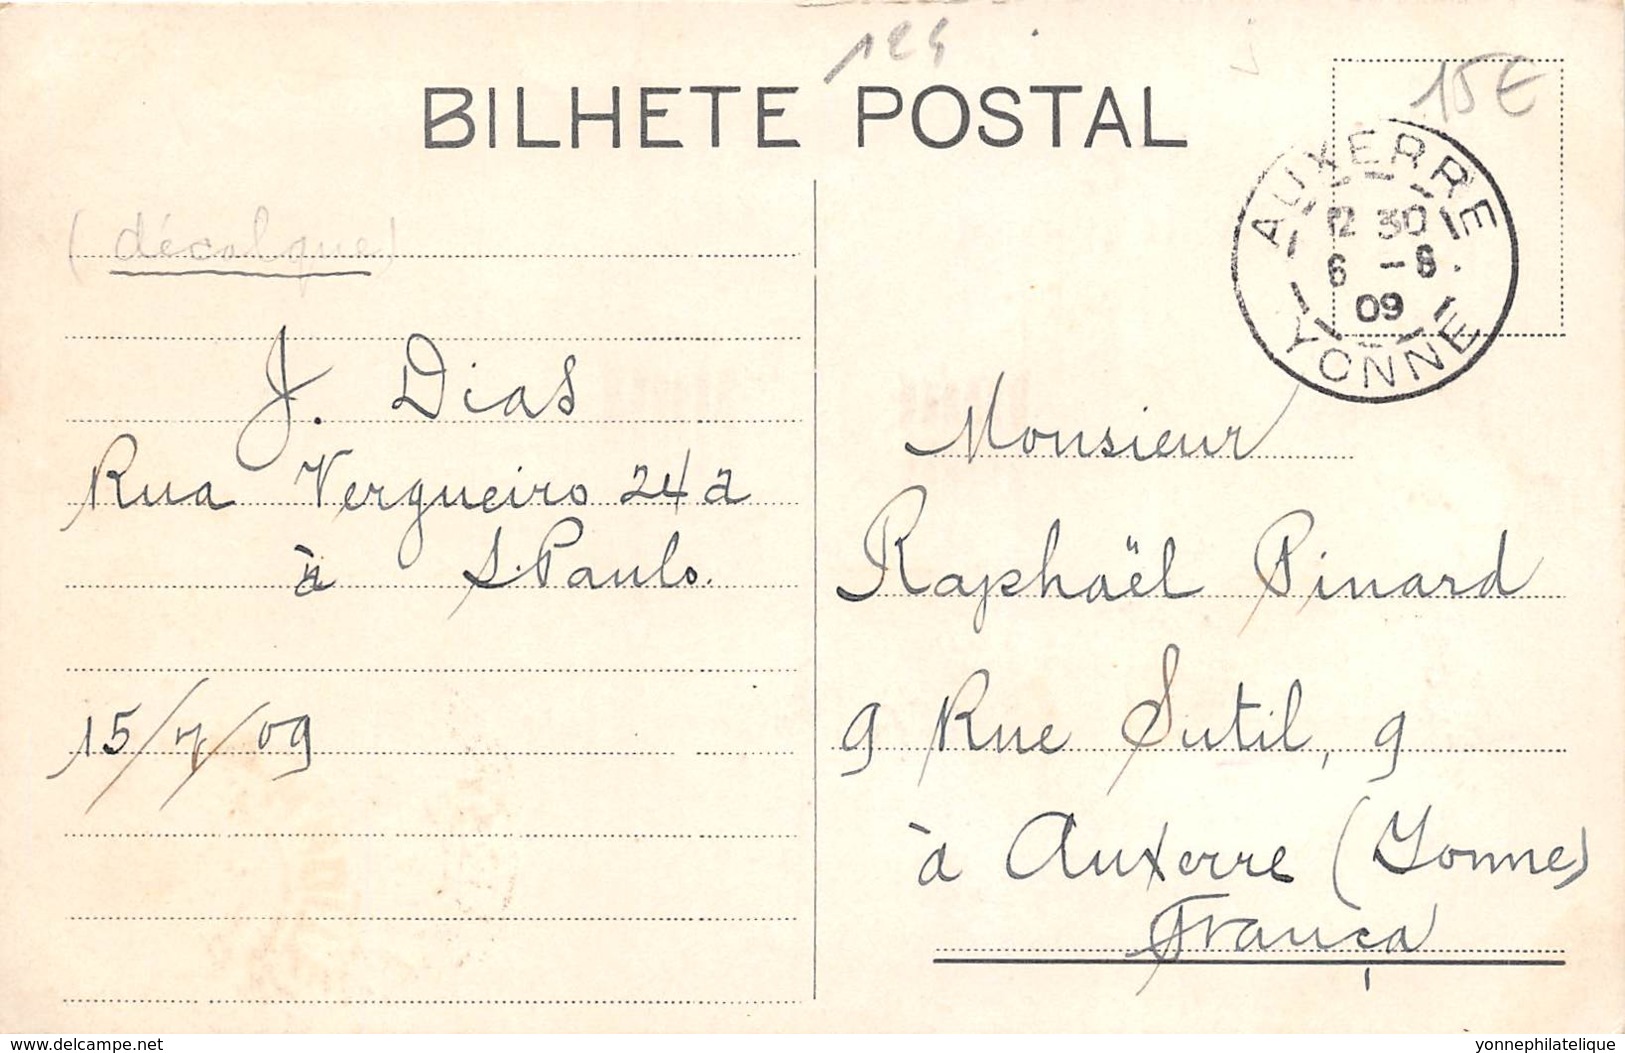 124
BILHETE POSTAL
15€
AUXERRE
12 30
6 -8
09
YONNE
(décolque)
J. Dias
Rua Vergueiro 242
à S. Paulo.
15/7/09
Monsieur
Raphaël Pinard
9 Rue Sutil, 9
à Auxerre (Yonne)
França
delcampe.net
yonnephilatelique